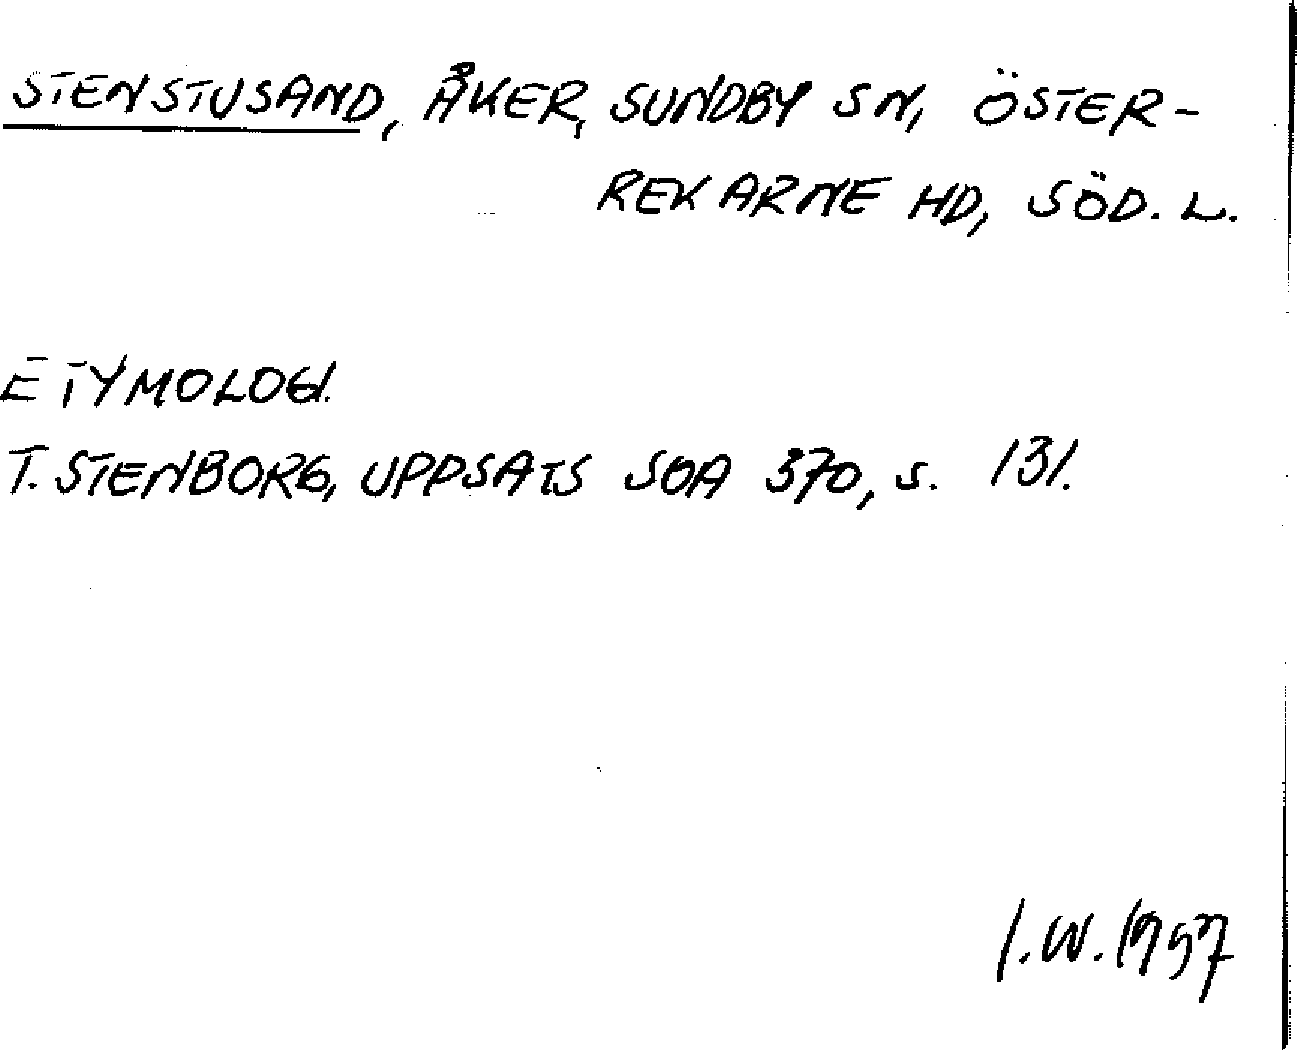 STENSTUSAND, ÅKER, SUNDBY SN, ÖSTER-
REKARNE HD, SÖD. L.
ETYMOLOGI.
T. STENBORG, UPPSATS SOA 370, s. 131.
I.W. 1997